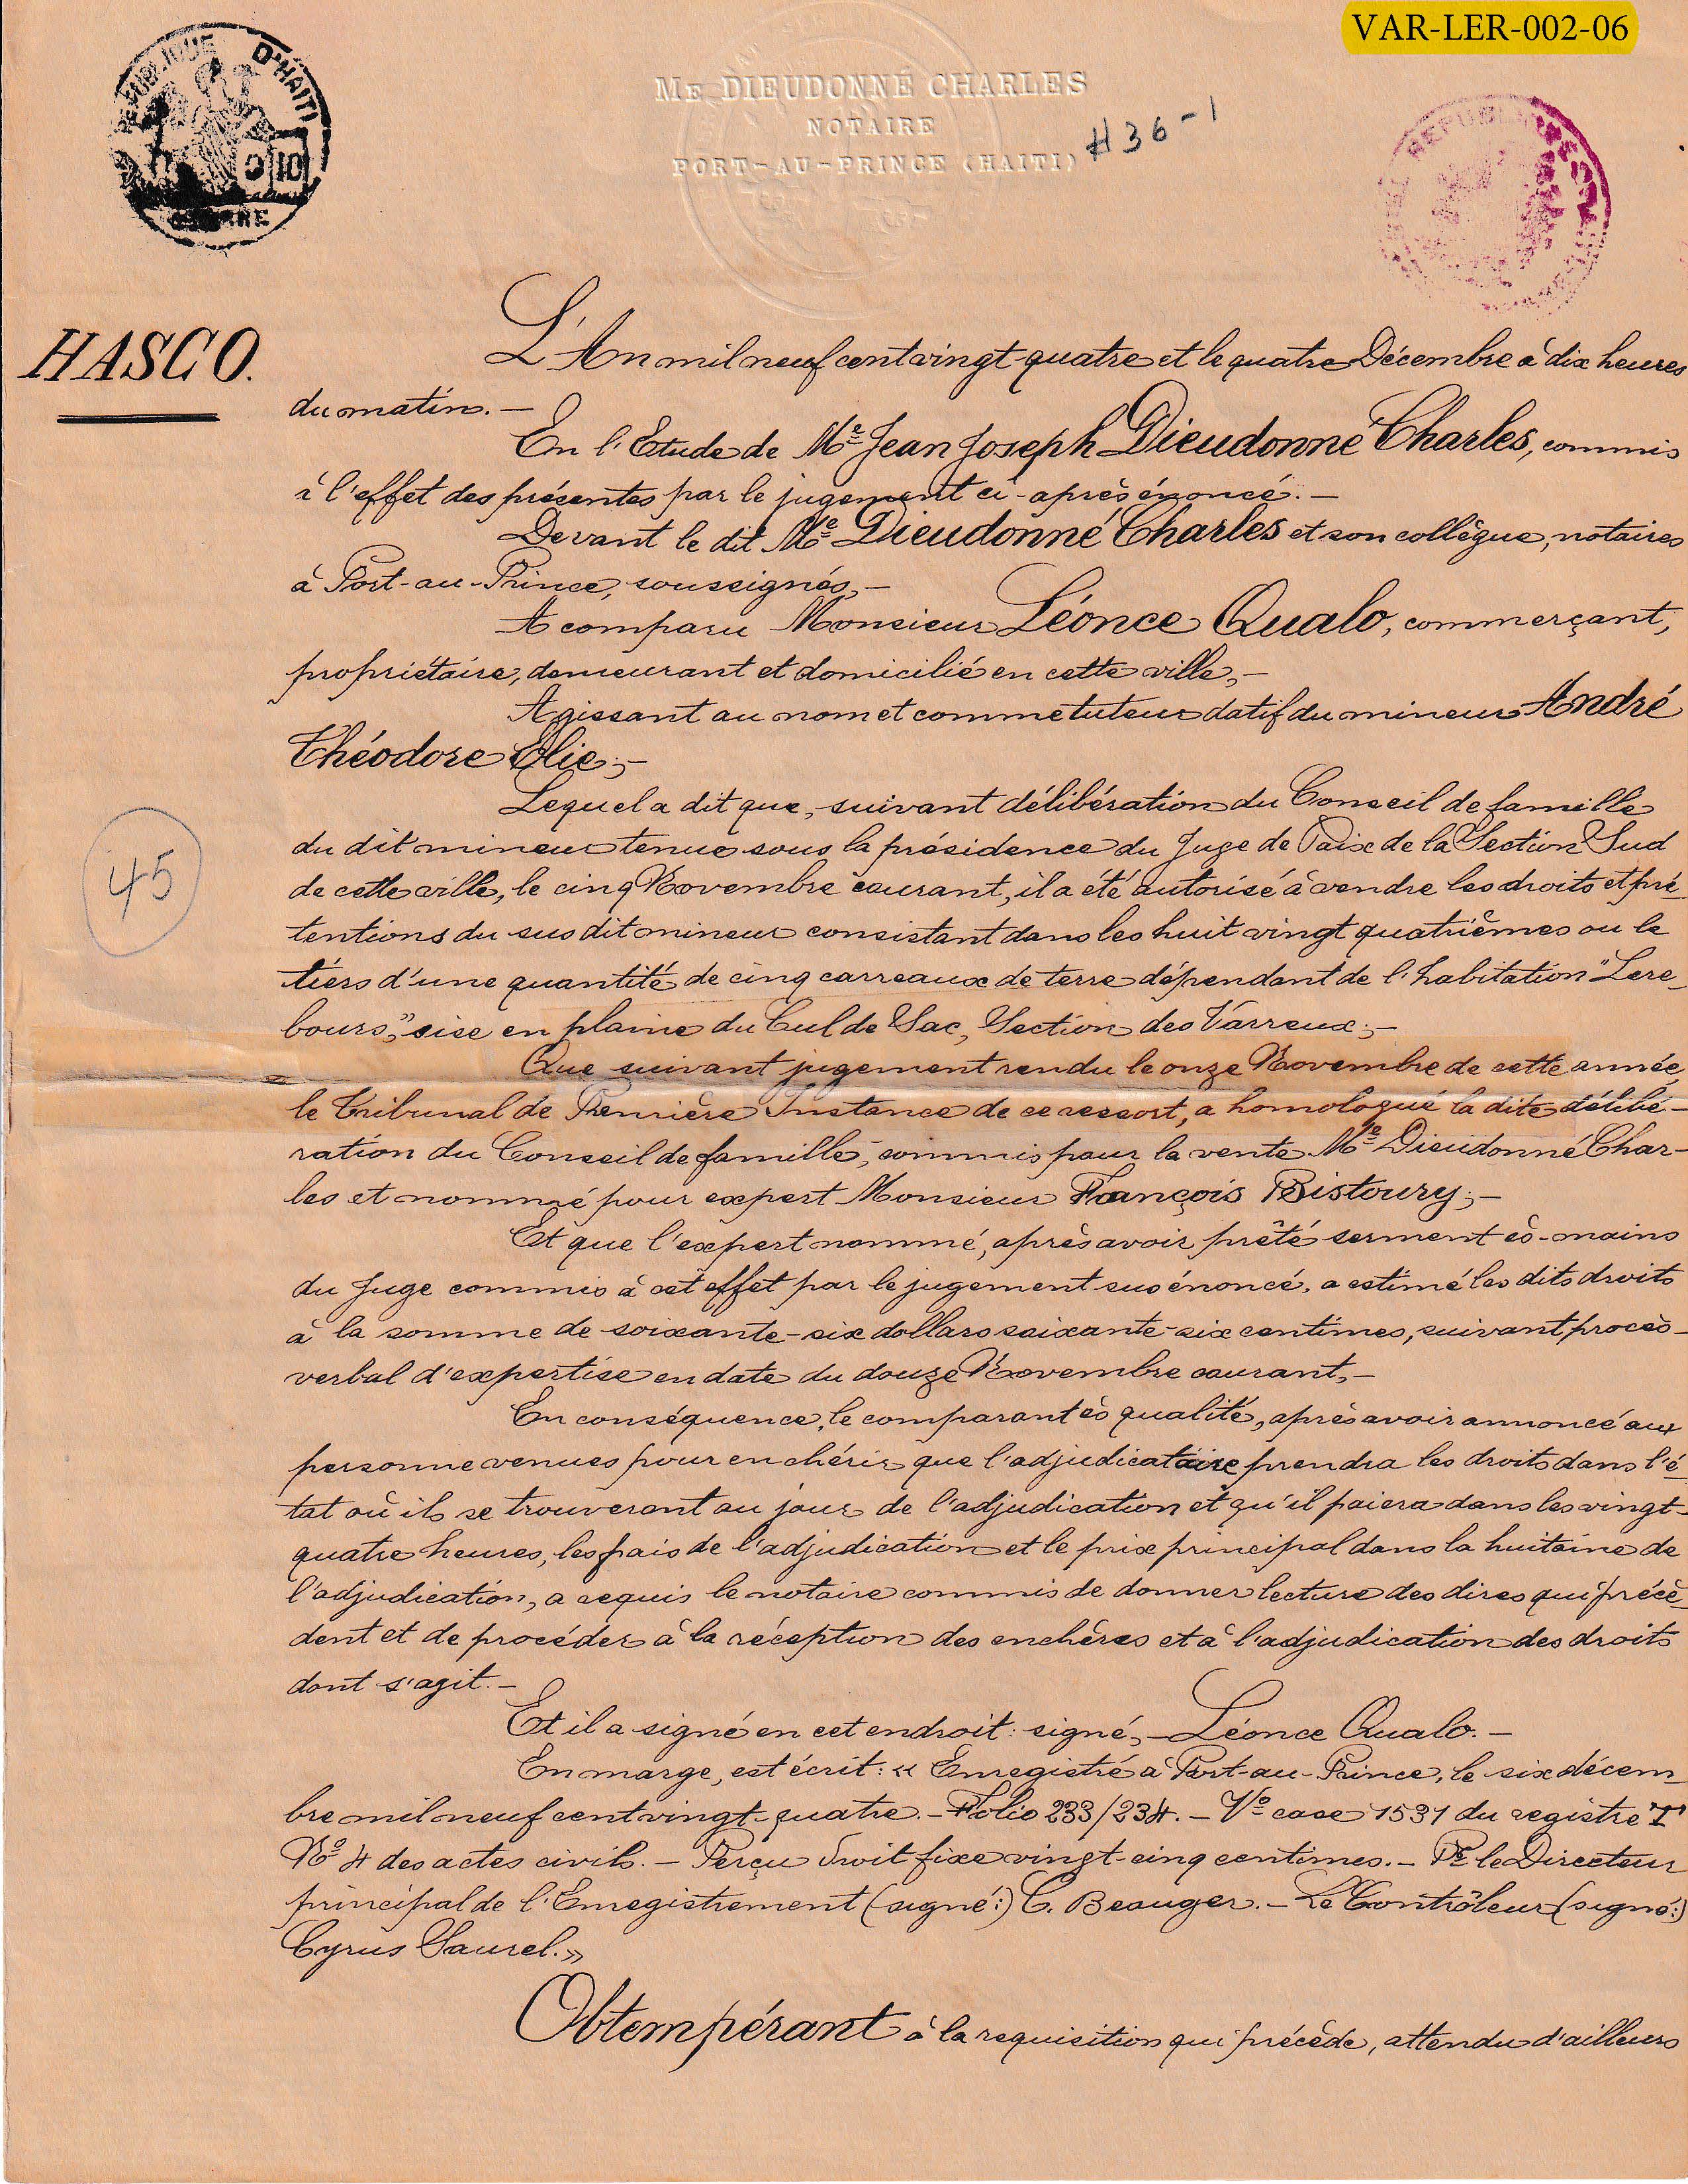 VAR-LER-002-06
RÉPUBLIQUE D'HAITI
ME DIEUDONNÉ CHARLES
NOTAIRE
PORT-AU-PRINCE (HAITI)
#36-1
REPUBLIQUE
HASCO.
L'An mil neuf cent vingt-quatre et le quatre Décembre à dix heures
du matin.—
En l'Etude de Me Jean Joseph Dieudonné Charles, commis
à l'effet des présentes par le jugement ci-après énoncé.—
Devant le dit Me Dieudonné Charles et son collègue, notaires
à Port-au-Prince, soussignés,—
A comparu Monsieur Léonce Qualo, commerçant,
propriétaire, demeurant et domicilié en cette ville,—
Agissant au nom et comme tuteur datif du mineur André
Théodore Elie;—
Lequel a dit que, suivant délibération du Conseil de famille
du dit mineur tenue sous la présidence du Juge de Paix de la Section Sud
de cette ville, le cinq Novembre courant, il a été autorisé à vendre les droits et pré-
tentions du sus dit mineur consistant dans les huit vingt quatrièmes ou le
tiers d'une quantité de cinq carreaux de terre dépendant de l'habitation "Lere-
bours," sise en plaine du Cul de Sac, Section des Varreux;—
45
Que suivant jugement rendu le onze Novembre de cette année,
le Tribunal de Première Instance de ce ressort, a homologué la dite délibé-
ration du Conseil de famille, commis pour la vente Me Dieudonné Char-
les et nommé pour expert Monsieur François Bistoury;—
Et que l'expert nommé, après avoir prêté serment ès-mains
du Juge commis à cet effet par le jugement sus énoncé, a estimé les dits droits
à la somme de soixante-six dollars soixante-six centimes, suivant procès-
verbal d'expertise en date du douze Novembre courant,—
En conséquence, le comparant ès qualité, après avoir annoncé aux
personne venues pour enchérir que l'adjudicataire prendra les droits dans l'é-
tat où ils se trouveront au jour de l'adjudication et qu'il paiera dans les vingt-
quatre heures, les frais de l'adjudication et le prix principal dans la huitaine de
l'adjudication, a requis le notaire commis de donner lecture des dires qui précè-
dent et de procéder à la réception des enchères et à l'adjudication des droits
dont s'agit.—
Et il a signé en cet endroit: signé,— Léonce Qualo.—
En marge, est écrit: « Enregistré à Port-au-Prince, le six décem-
bre mil neuf cent vingt-quatre.— Folio 233/234.— Vo case 1531 du registre T
No 4 des actes civils.— Perçu droit fixe vingt-cinq centimes.— Pr le Directeur
principal de l'Enregistrement (signé:) C. Beauger.— Le Contrôleur (signé:)
Cyrus Saurel.»
Obtempérant à la requisition qui précède, attendu d'ailleurs